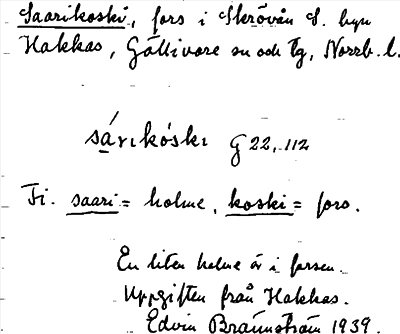 Saarikoski, fors i Skrövån S. byn
Hakkas, Gällivare sn och tg, Norrb. l.
sárıkòskı G 22, 112
Fi. saari = holme, koski = fors.
En liten holme är i forsen.
Uppgiften från Hakkas.
Edvin Brännström 1939.